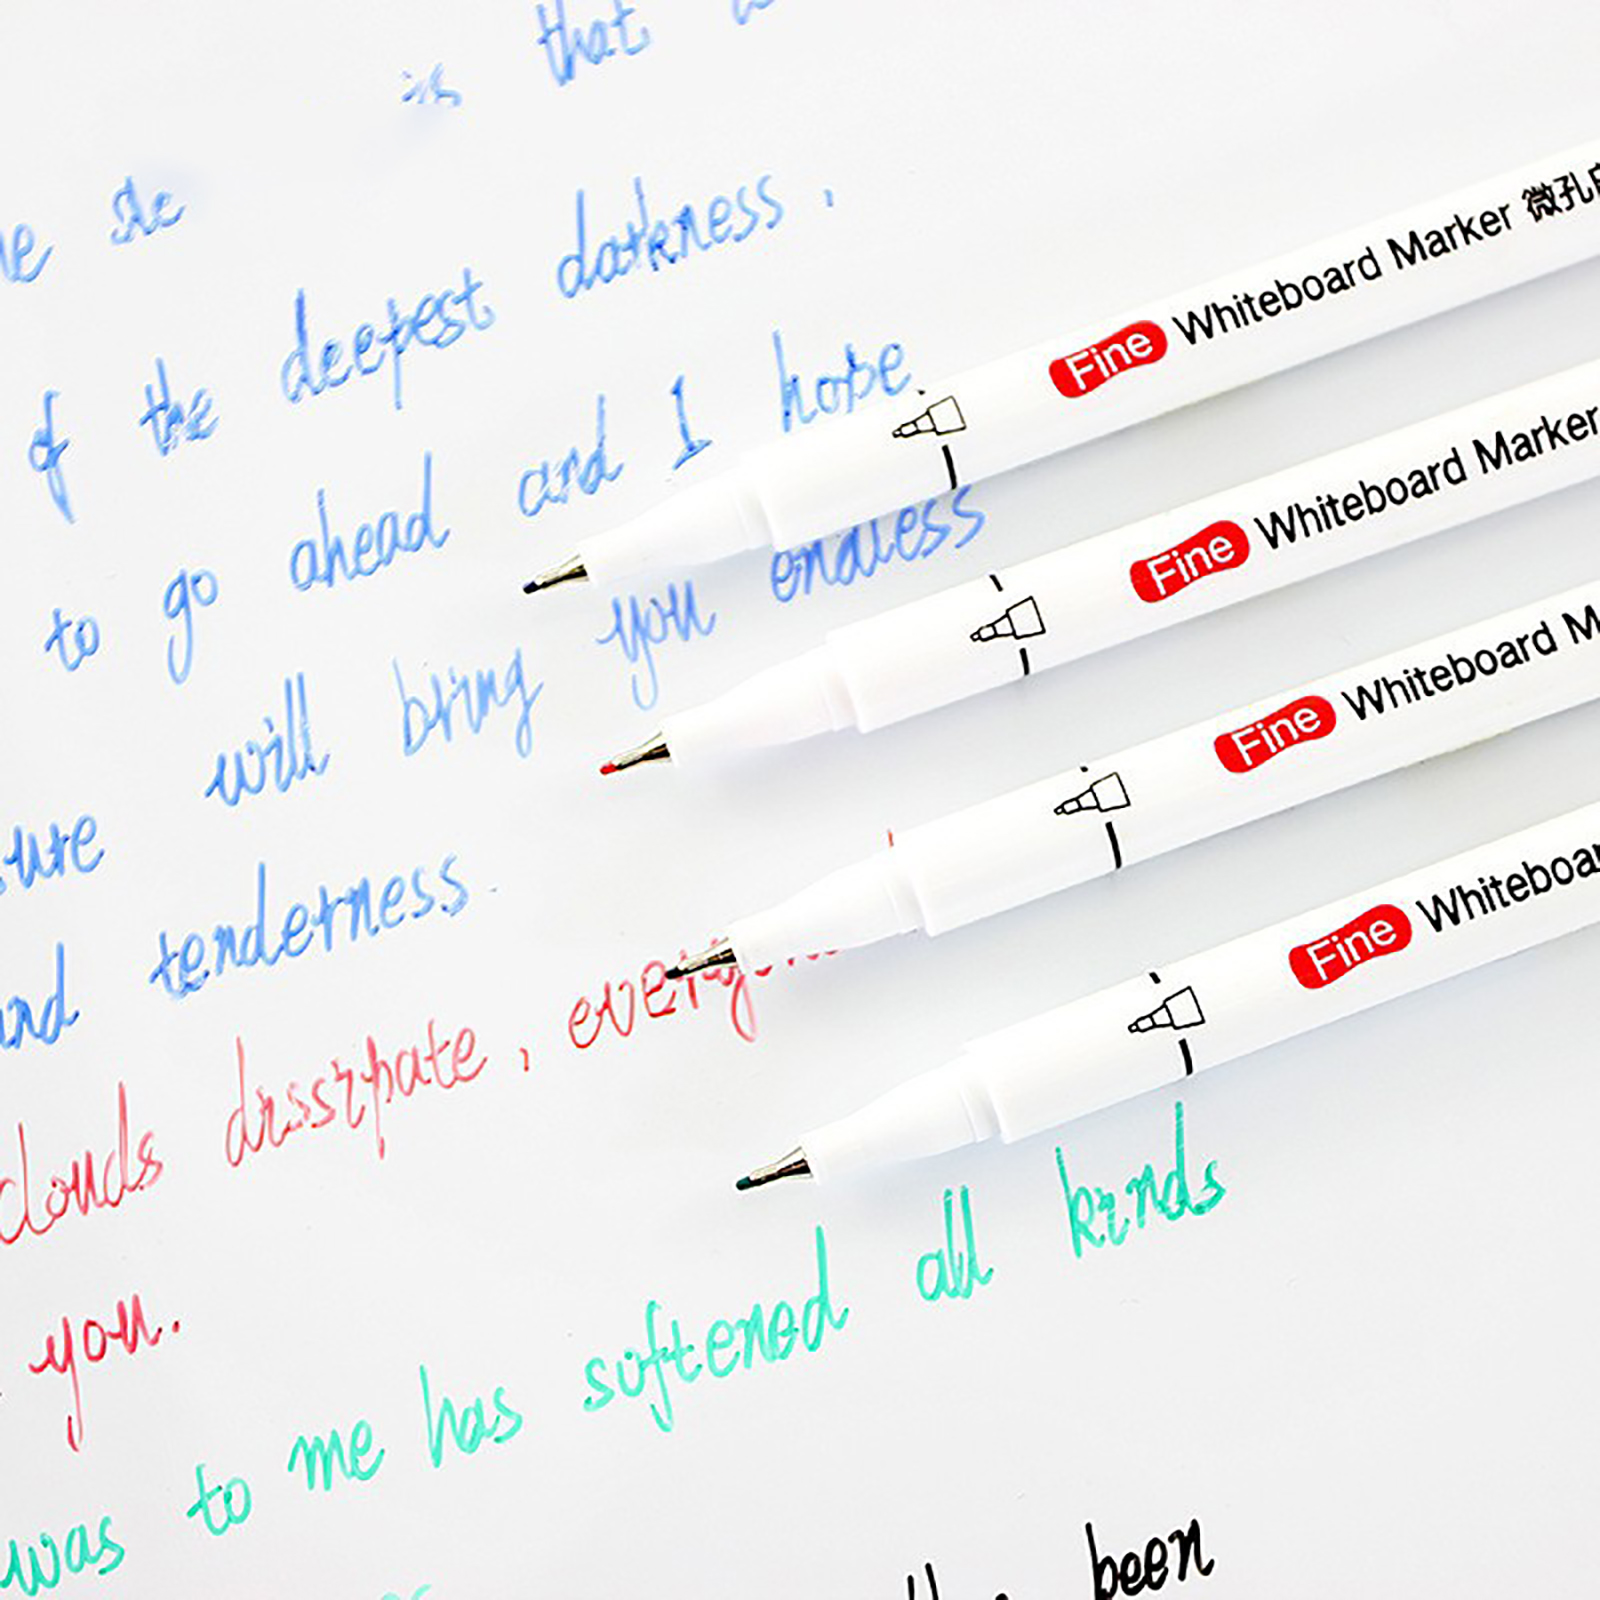 is that
of the deepest darkness,
to go ahead and I hope
will bring you endless
and tenderness.
clouds dissipate, everyone
you.
was to me has softened all kinds
been
Fine Whiteboard Marker 微孔
Fine Whiteboard Marker
Fine Whiteboard M
Fine Whiteboar